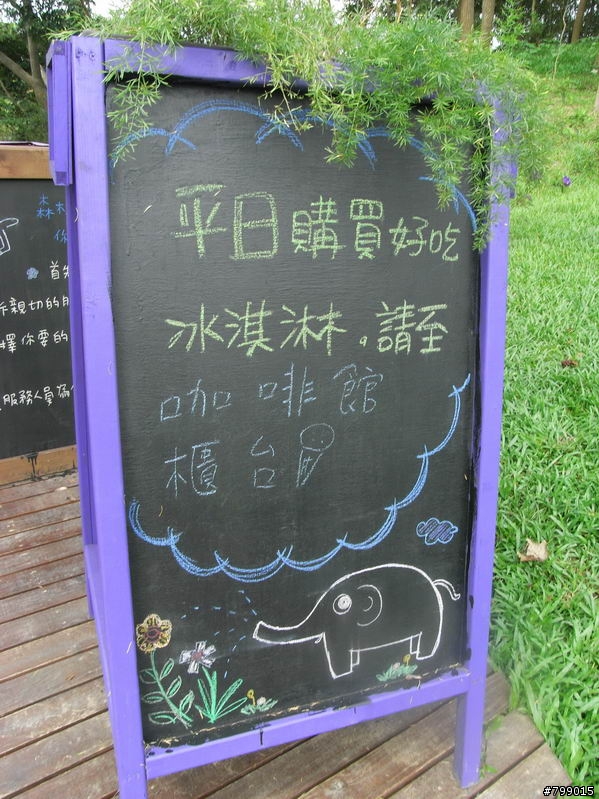 平日購買好吃
冰淇淋。請至
咖啡館
櫃台
森林
你
首先
斥親切的服
擇你要的
服務人員協
#799015